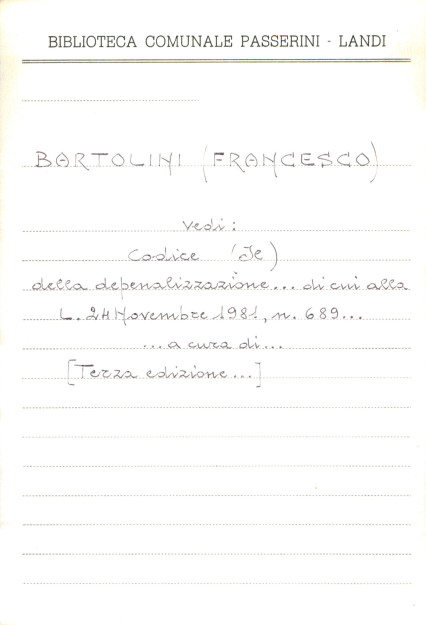 BIBLIOTECA COMUNALE PASSERINI - LANDI
BARTOLINI (FRANCESCO)
Vedi:
Codice (Il)
della depenalizzazione... di cui alla
L. 24 Novembre 1981, n. 689...
...a cura di...
[Terza edizione...]